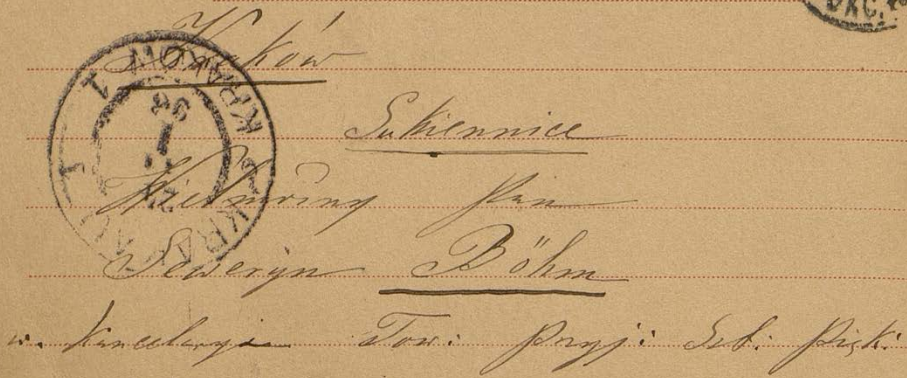 Kraków
Sukiennice
Wielmożny Pan
Seweryn Böhm
w. Kancelaryi Tow: Przyj: Szt: Pięk:
KRAKÓW 1
KRAKAU 1